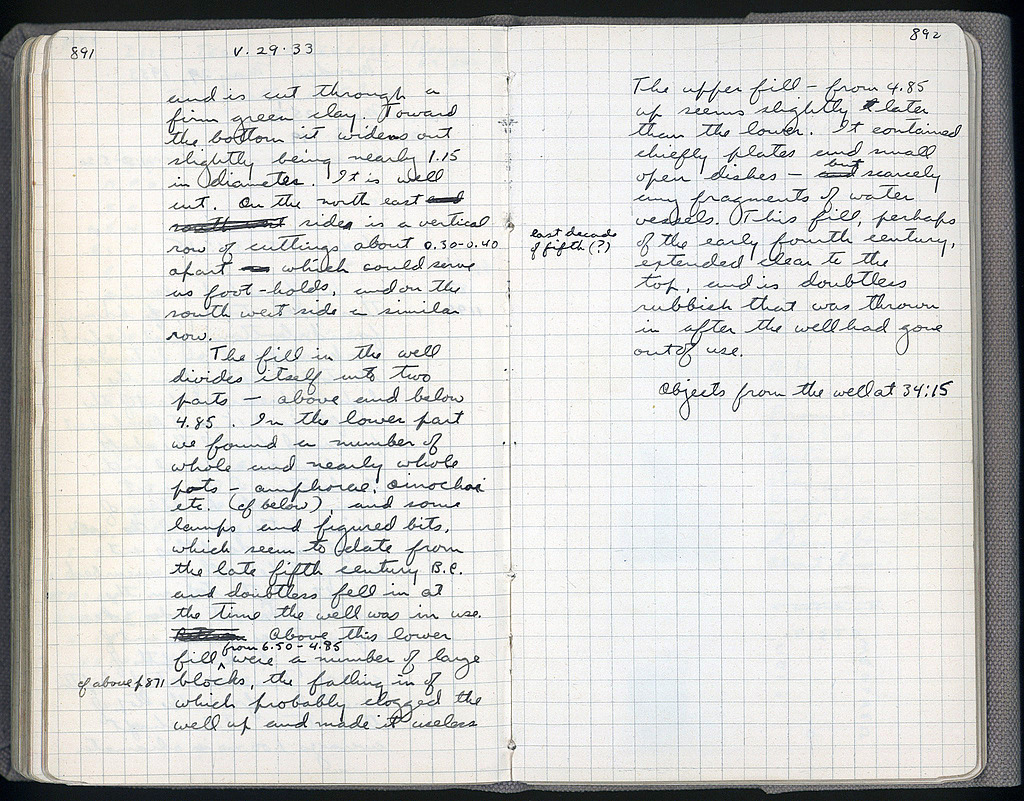 891
V. 29. 33
and is cut through a
firm green clay. Toward
the bottom it widens out
slightly being nearly 1.15
in diameter. It is well
cut. On the north east and
side is a vertical
row of cuttings about 0.30-0.40
apart which could serve
as foot-holds, and on the
south west side a similar
row.
The fill in the well
divides itself into two
parts – above and below
4.85. In the lower part
we found a number of
whole and nearly whole
pots – amphorae, oinochoai
etc. (cf below), and some
lamps and figured bits,
which seem to date from
the late fifth century B.C.
and doubtless fell in at
the time the well was in use.
Above this lower
from 6.50 - 4.85
fill ^ were a number of large
cf above p 871
blocks, the falling in of
which probably clogged the
well up and made it useless
892
The upper fill – from 4.85
up seems slightly later
than the lower. It contained
chiefly plates and small
but
open dishes – and scarcely
any fragments of water
vessels. This fill, perhaps
last decade
of fifth (?)
of the early fourth century,
extended clear to the
top, and is doubtless
rubbish that was thrown
in after the well had gone
out of use.
Objects from the well at 34:15